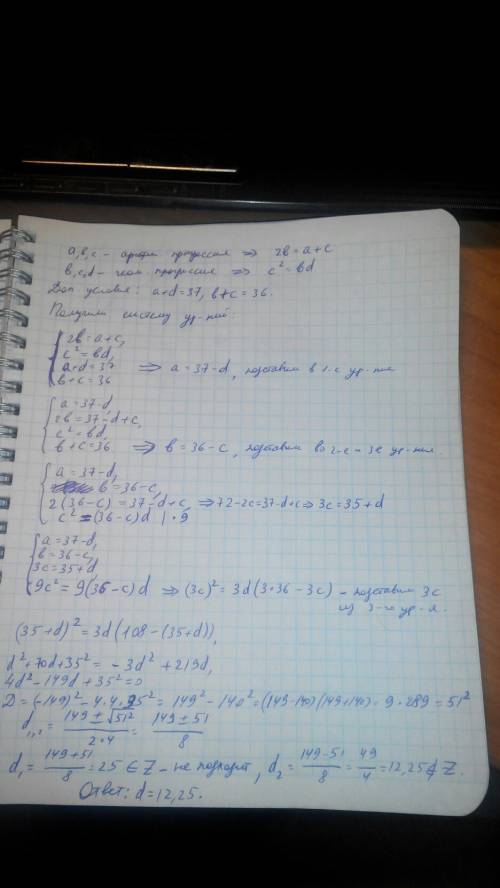 a,b,c – арифм прогрессия ⇒ 2b=a+c
b,c,d – геом. прогрессия ⇒ c²=bd
Доп условия: a+d=37, b+c=36.
Получим систему ур-ний:
{ 2b=a+c,
c²=bd,
a+d=37 ⇒ a=37-d, подставим в 1-е ур-ние
b+c=36
{ a=37-d,
2b=37-d+c,
c²=bd,
b+c=36 ⇒ b=36-c, подставим во 2-е и 3е ур-ния.
{ a=37-d,
b=36-c,
2(36-c)=37-d+c, ⇒ 72-2c=37-d+c ⇒ 3c=35+d
c²=(36-c)d |·9
{ a=37-d,
b=36-c,
3c=35+d
9c²=9(36-c)d ⇒ (3c)²=3d(3·36-3c) – подставим 3c
из 3-го ур-я.
(35+d)²=3d(108-(35+d)),
d²+70d+35²=-3d²+219d,
4d²-149d+35²=0
D=(-149)²-4·4·35²=149²-140²=(149-140)(149+140)=9·289=51²
d₁,₂=(149±√51²)/(2·4)=(149±51)/8
d₁=(149+51)/8=25∈Z – не подходит, d₂=(149-51)/8=49/4=12,25∉Z.
Ответ: d=12,25.